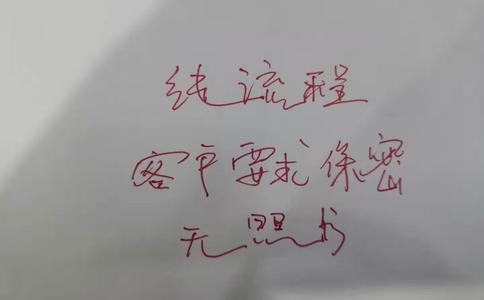 线流程
客户要求保密
无照片